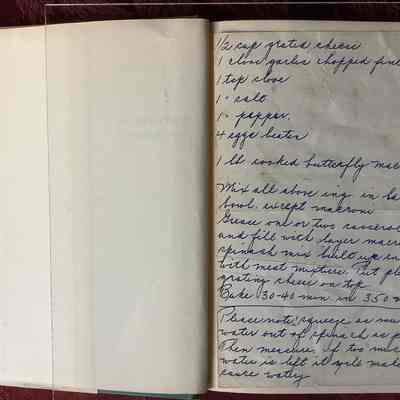 1/2 cup grated cheese
1 clove garlic chopped fine
1 tsp clove
1 " salt
1 " pepper
4 eggs beaten
1 lb cooked butterfly mac
Mix all above ing. in
bowl. except macroni
Grease one or two casserol
and fill with layer macro
spinach mix built up
with meat mixture. Put pl
grating cheese on top
Bake 30-40 min in 350
Please note: squeeze as mu
water out of spinach as p
Then measure, if too muc
water is left it will mak
cause watery